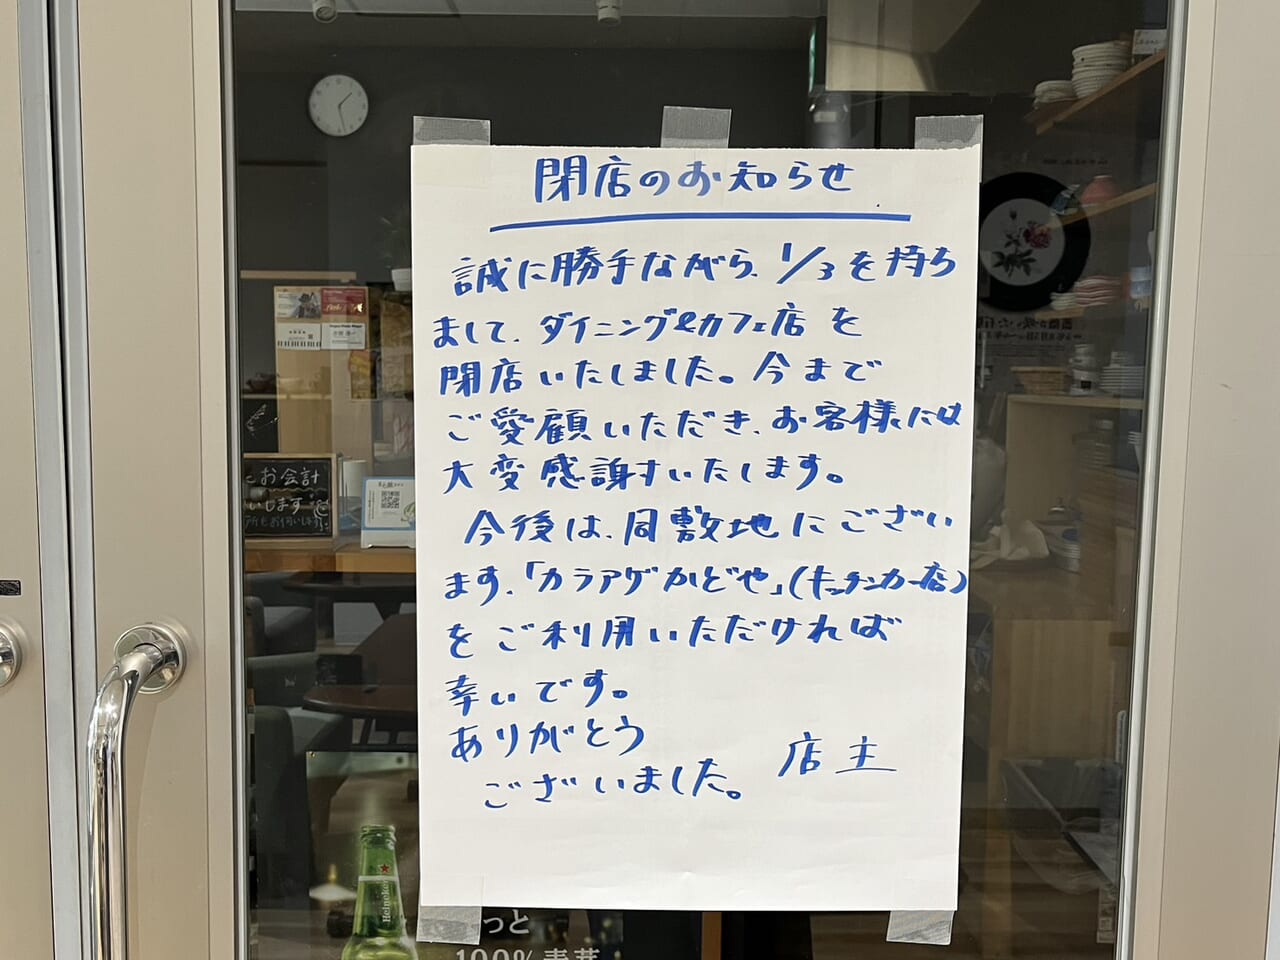 閉店のお知らせ
誠に勝手ながら、1/3を持ち
まして、ダイニング&カフェ店を
閉店いたしました。今まで
ご愛顧いただき、お客様には
大変感謝すいたします。
今後は、同敷地にござい
ます、「カラアゲかどや」(キッチンカー店)
をご利用いただければ
幸いです。
ありがとう
ございました。
店主
お会計
いします
Heineken
っと
100%麦芽